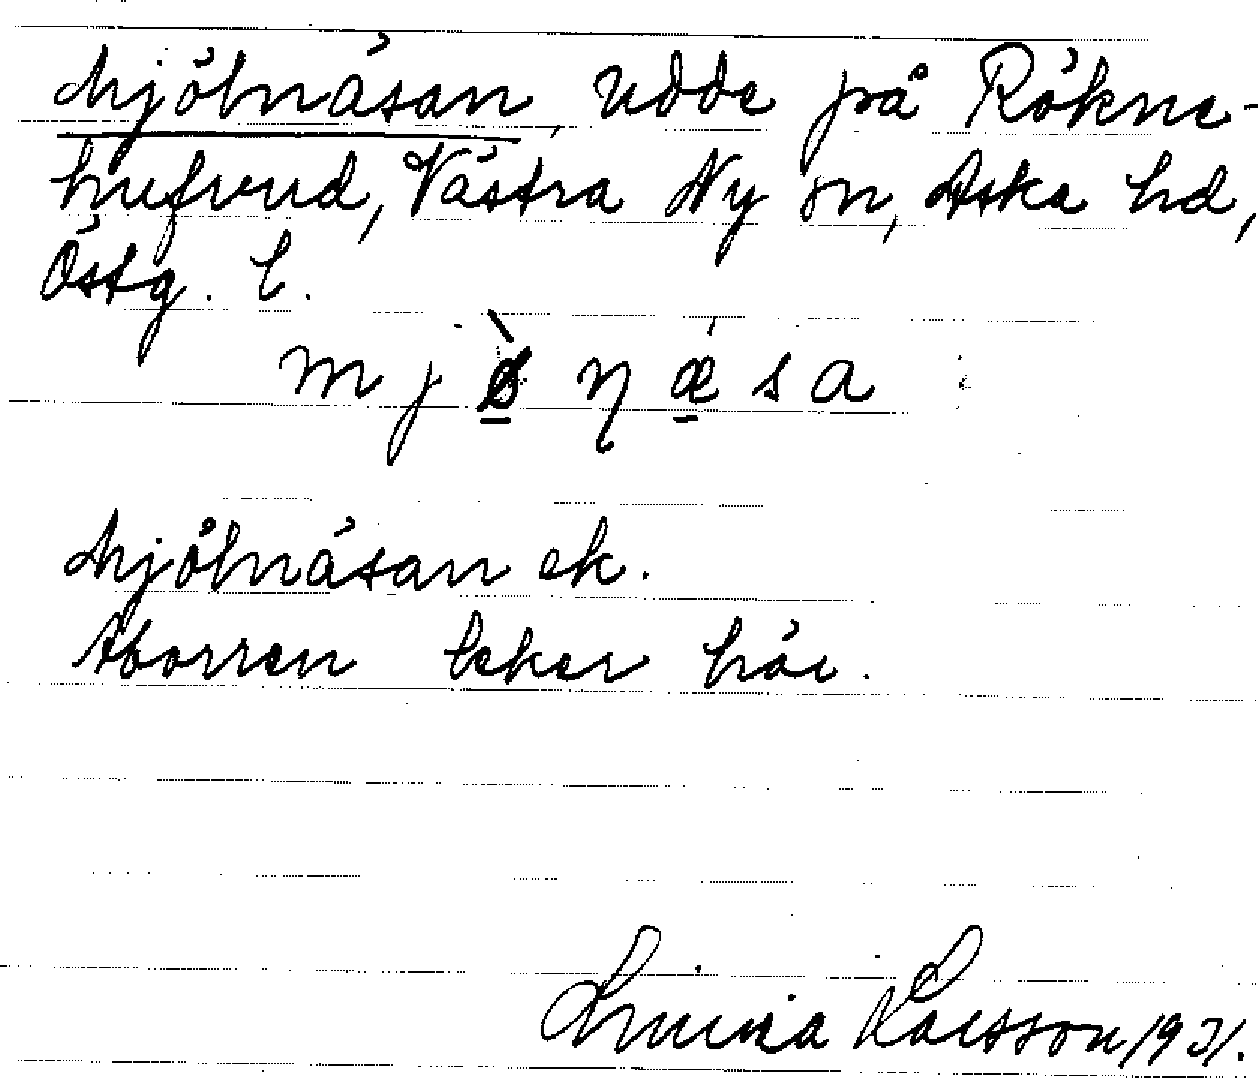 Mjölnäsan, udde på Räkne-
hufvud, Västra Ny sn, Aska hd,
Östg. l.
m j ö̀ η æ s a
Mjölnäsan ek.
Aborren leker här.
Linnéa Larsson 1931.